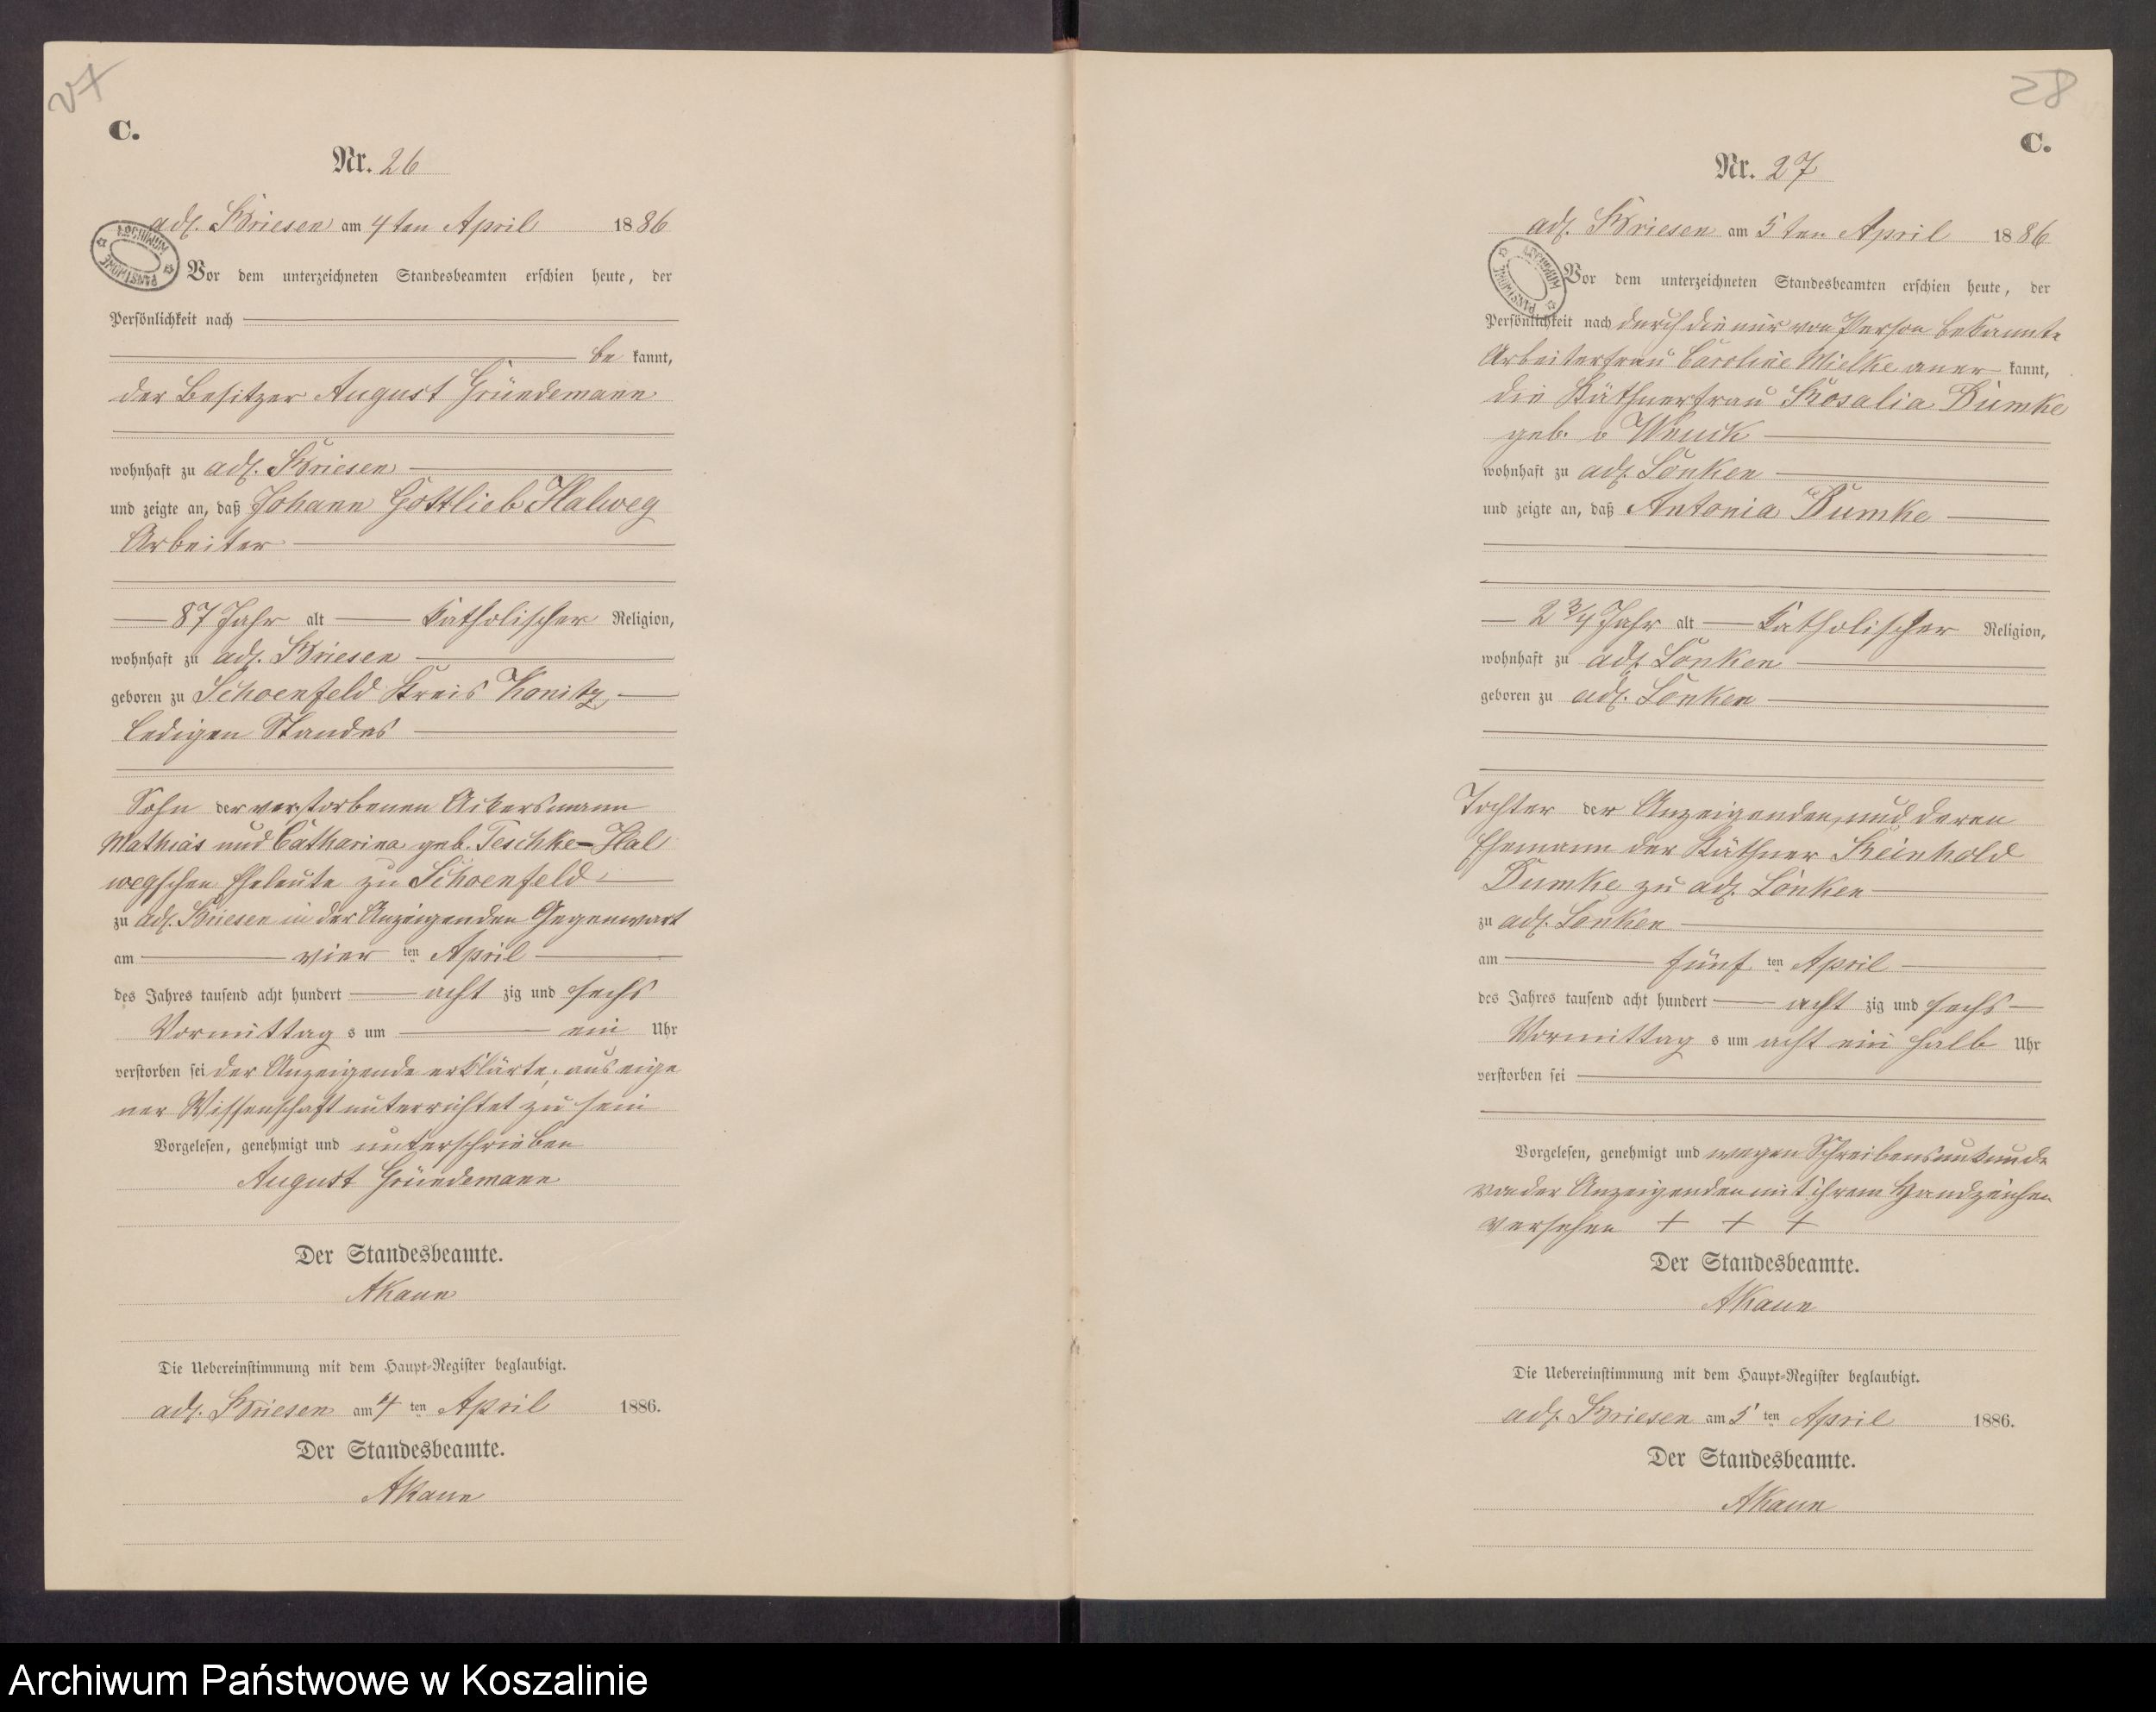 27
C.
Nr. 26
adl. Briesen am 4ten April 1886
ARCHIWUM PAŃSTWOWE
Vor dem unterzeichneten Standesbeamten erschien heute, der
Persönlichkeit nach
be kannt,
der Besitzer August Gründemann
wohnhaft zu adl. Briesen
und zeigte an, daß Johann Gottlieb Halweg
Arbeiter
87 Jahr alt katholischer Religion,
wohnhaft zu adl. Briesen
geboren zu Schoenfeld Kreis Konitz,
ledigen Standes
Sohn der verstorbenen Ackersmann
Mathias und Catharina geb. Teschke-Hal
wegschen Eheleute zu Schoenfeld
zu adl. Briesen in der Anzeigenden Gegenwart
am vier ten April
des Jahres tausend acht hundert acht zig und sechs
Vormittag s um ein Uhr
verstorben sei der Anzeigende erklärte, aus eige
ner Wissenschaft unterrichtet zu sein
Vorgelesen, genehmigt und unterschrieben
August Gründemann
Der Standesbeamte.
AKaun
Die Uebereinstimmung mit dem Haupt-Register beglaubigt.
adl. Briesen am 4 ten April 1886.
Der Standesbeamte.
AKaun
28
C.
Nr. 27
adl. Briesen am 5ten April 1886
ARCHIWUM PAŃSTWOWE
Vor dem unterzeichneten Standesbeamten erschien heute, der
Persönlichkeit nach durch die mir von Person bekannte
Arbeiterfrau Caroline Mielke aner kannt,
die Käthnerfrau Rosalia Dumke
geb. v
wohnhaft zu adl. Lonken
und zeigte an, daß Antonia Dumke
2 3/4 Jahr alt katholischer Religion,
wohnhaft zu adl. Lonken
geboren zu adl. Lonken
Tochter der Anzeigenden, und deren
Ehemann der Käthner Reinhold
Dumke zu adl. Lonken
zu adl. Lonken
am fünf ten April
des Jahres tausend acht hundert acht zig und sechs
Vormittag s um acht ein halb Uhr
verstorben sei
Vorgelesen, genehmigt und wegen Schreibensunkunde
von der Anzeigenden mit ihrem Handzeichen
versehen + + +
Der Standesbeamte.
AKaun
Die Uebereinstimmung mit dem Haupt-Register beglaubigt.
adl. Briesen am 5 ten April 1886.
Der Standesbeamte.
AKaun
Archiwum Państwowe w Koszalinie